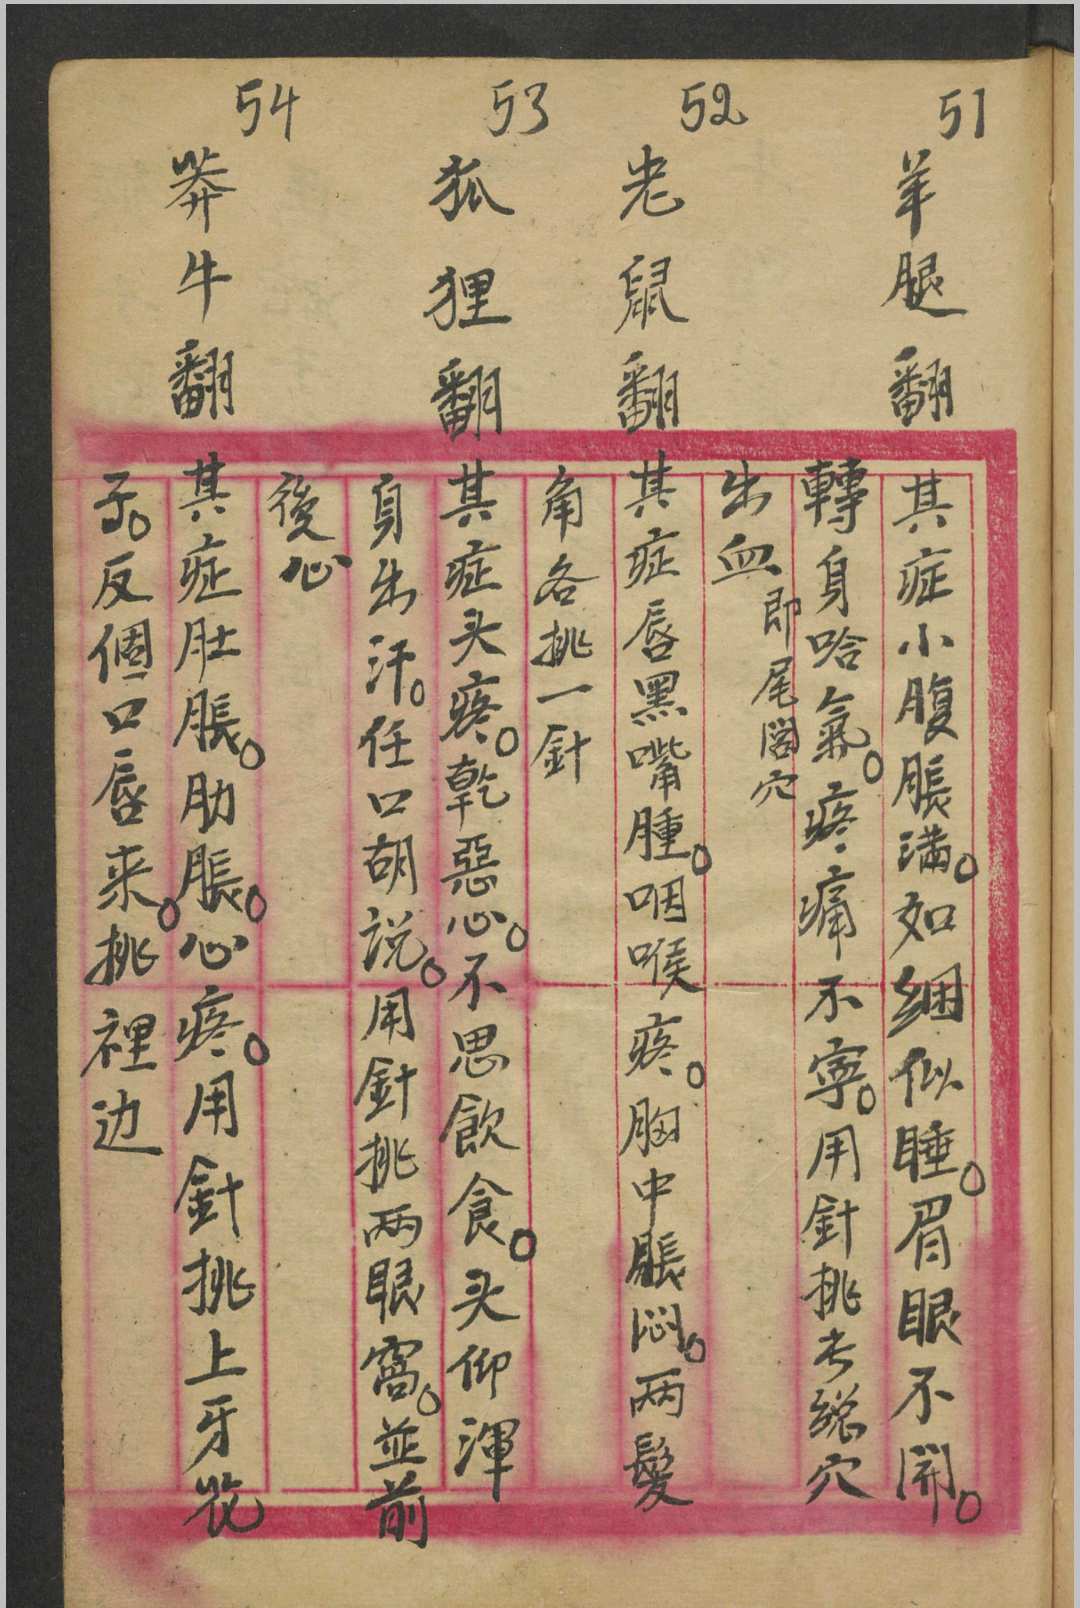 51
羊腿翻
其症小腹脹满。如綑似睡。眉眼不開。
轉身哈氣。疼痛不寧。用針挑考總穴
出血即尾閭穴
52
老鼠翻
其症唇黑嘴腫。咽喉疼。胸中脹悶。两鬓
角各挑一針
53
狐狸翻
其症头疼。乾惡心。不思飲食。头仰渾
身出汗。任口胡説。用針挑两眼窩。並前
後心
54
莽牛翻
其症肚脹。肋脹。心疼。用針挑上牙花
子。反個口唇来。挑裡边